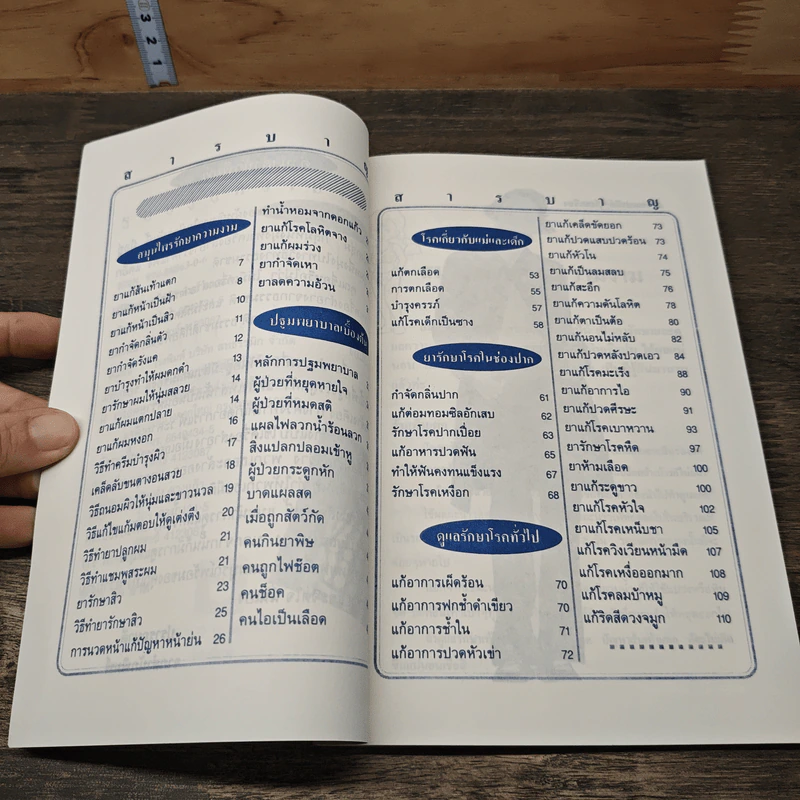 3
2
1
สารบาญ
สมุนไพรรักษาความงาม
ยาแก้ส้นเท้าแตก 7
ยาแก้หน้าเป็นฝ้า 8
ยาแก้หน้าเป็นสิว 10
ยากำจัดกลิ่นตัว 11
ยากำจัดรังแค 12
ยาบำรุงทำให้ผมดกดำ 13
ยารักษาผมให้นุ่มสลวย 14
ยาแก้ผมแตกปลาย 14
ยาแก้ผมหงอก 16
วิธีทำครีมบำรุงผิว 17
เคล็ดลับขนตางอนสวย 18
วิธีถนอมผิวให้นุ่มและขาวนวล 19
วิธีแก้ไขแก้มตอบให้ดูเต่งตึง 20
วิธีทำยาปลูกผม 21
วิธีทำแชมพูสระผม 21
ยารักษาสิว 23
วิธีทำยารักษาสิว 25
การนวดหน้าแก้ปัญหาหน้าย่น 26
ทำน้ำหอมจากดอกแก้ว
ยาแก้โรคโลหิตจาง
ยาแก้ผมร่วง
ยากำจัดเหา
ยาลดความอ้วน
ปฐมพยาบาลเบื้องต้น
หลักการปฐมพยาบาล
ผู้ป่วยที่หยุดหายใจ
ผู้ป่วยที่หมดสติ
แผลไฟลวกน้ำร้อนลวก
สิ่งแปลกปลอมเข้าหู
ผู้ป่วยกระดูกหัก
บาดแผลสด
เมื่อถูกสัตว์กัด
คนกินยาพิษ
คนถูกไฟช๊อต
คนช็อค
คนไอเป็นเลือด
สารบาญ
โรคเกี่ยวกับแม่และเด็ก
แก้ตกเลือด 53
การตกเลือด 55
บำรุงครรภ์ 57
แก้โรคเด็กเป็นซาง 58
ยารักษาโรคในช่องปาก
กำจัดกลิ่นปาก 61
แก้ต่อมทอมซิลอักเสบ 62
รักษาโรคปากเปื่อย 63
แก้อาหารปวดฟัน 65
ทำให้ฟันคงทนแข็งแรง 67
รักษาโรคเหงือก 68
ดูแลรักษาโรคทั่วไป
แก้อาการเผ็ดร้อน 70
แก้อาการฟกช้ำดำเขียว 70
แก้อาการช้ำใน 71
แก้อาการปวดหัวเข่า 72
ยาแก้เคล็ดขัดยอก 73
ยาแก้ปวดแสบปวดร้อน 73
ยาแก้หัวโน 74
ยาแก้เป็นลมสลบ 75
ยาแก้สะอึก 76
ยาแก้ความดันโลหิต 78
ยาแก้ตาเป็นต้อ 80
ยาแก้นอนไม่หลับ 82
ยาแก้ปวดหลังปวดเอว 84
ยาแก้โรคมะเร็ง 88
ยาแก้อาการไอ 90
ยาแก้ปวดศีรษะ 91
ยาแก้โรคเบาหวาน 93
ยารักษาโรคหืด 97
ยาห้ามเลือด 100
ยาแก้ระดูขาว 100
ยาแก้โรคหัวใจ 102
ยาแก้โรคเหน็บชา 105
แก้โรควิงเวียนหน้ามืด 107
แก้โรคเหงื่อออกมาก 108
แก้โรคลมบ้าหมู 109
แก้ริดสีดวงจมูก 110